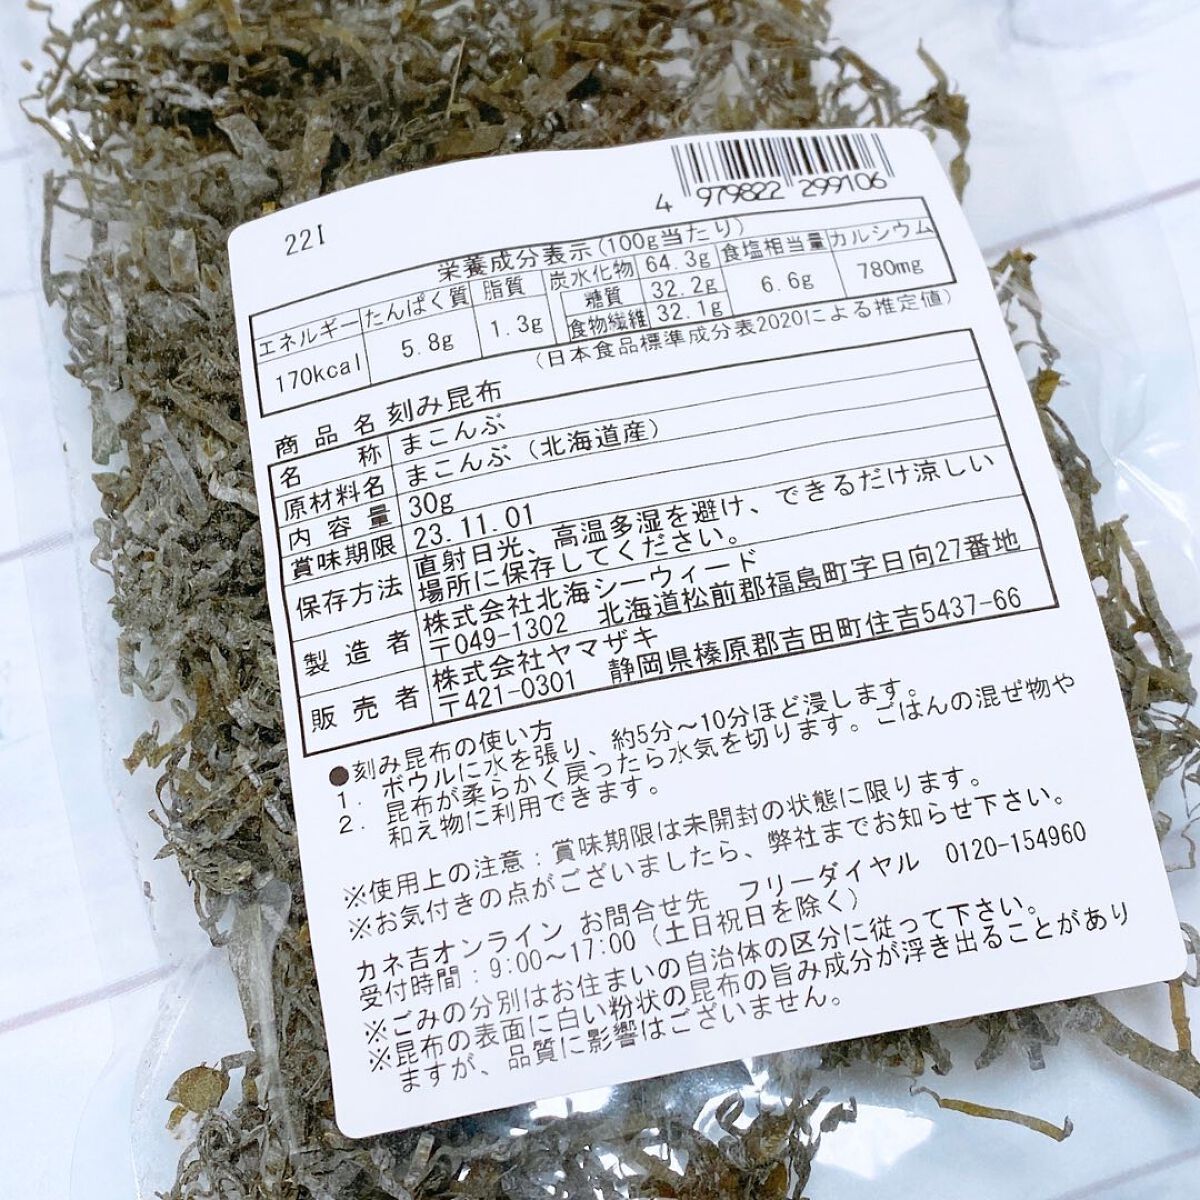 4 979822 299106
22I
栄養成分表示(100g当たり)
エネルギー たんぱく質 脂質 炭水化物 64.3g 食塩相当量 カルシウム
糖質 32.2g
食物繊維 32.1g
170kcal 5.8g 1.3g 6.6g 780mg
(日本食品標準成分表2020による推定値)
商品名 刻み昆布
名称 まこんぶ
原材料名 まこんぶ (北海道産)
内容量 30g
賞味期限 23.11.01
保存方法 直射日光、高温多湿を避け、できるだけ涼しい
場所に保存してください。
製造者 株式会社北海シーウィード
〒049-1302 北海道松前郡福島町字日向27番地
販売者 株式会社ヤマザキ
〒421-0301 静岡県榛原郡吉田町住吉5437-66
●刻み昆布の使い方
1. ボウルに水を張り、約5分～10分ほど浸します。
2. 昆布が柔らかく戻ったら水気を切ります。ごはんの混ぜ物や
和え物に利用できます。
※使用上の注意:賞味期限は未開封の状態に限ります。
※お気付きの点がございましたら、弊社までお知らせ下さい。
カネ吉オンライン お問合せ先 フリーダイヤル 0120-154960
受付時間:9:00～17:00 (土日祝日を除く)
※ごみの分別はお住まいの自治体の区分に従って下さい。
※昆布の表面に白い粉状の昆布の旨み成分が浮き出ることがあり
ますが、品質に影響はございません。